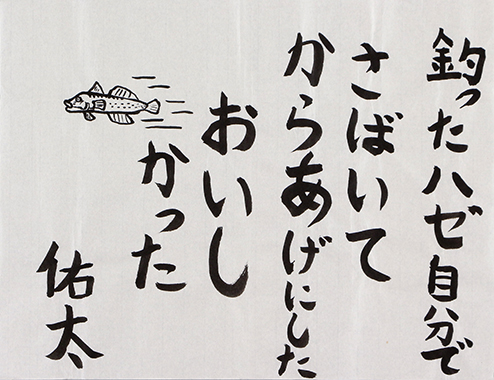 釣ったハゼ自分で
さばいて
からあげにした
おいし
かった
佑太